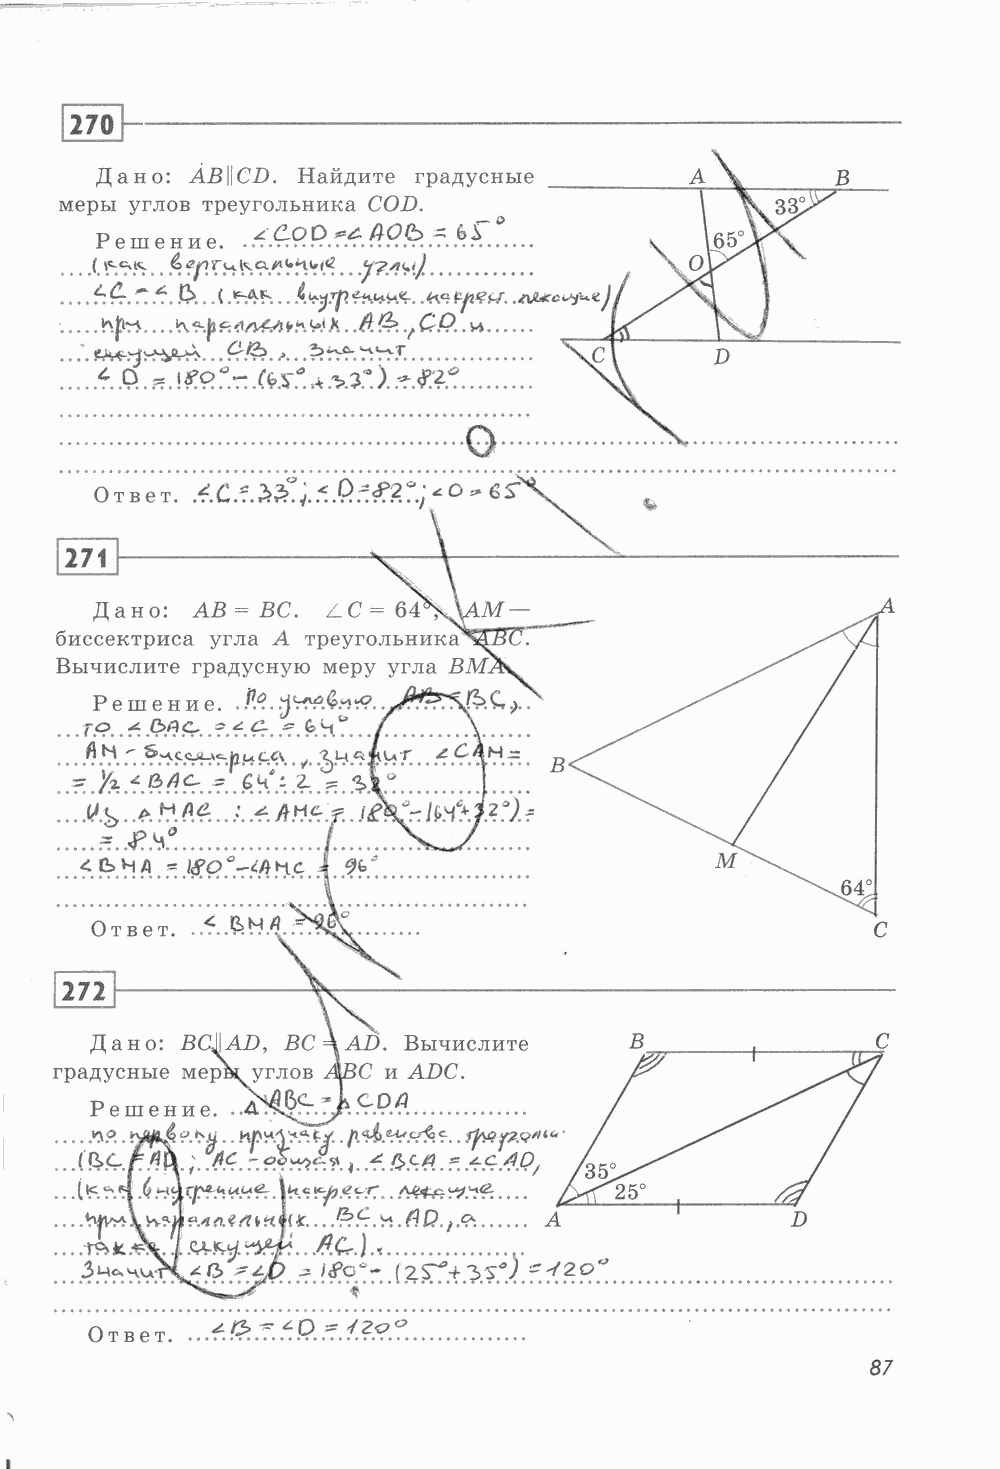 270
Дано: AB∥CD. Найдите градусные
меры углов треугольника COD.
Решение. ∠COD=∠AOB = 65°
(как вертикальные углы)
∠C = ∠B (как внутренние накрест лежащие)
при параллельных AB, CD и
секущей CB, значит
∠D = 180° - (65° + 33°) = 82°
Ответ. ∠C = 33°; ∠D = 82°; ∠O = 65°
A
B
33°
65°
O
C
D
271
Дано: AB = BC. ∠C = 64°, AM —
биссектриса угла A треугольника ABC.
Вычислите градусную меру угла BMA.
Решение. По условию AB = BC,
то ∠BAC = ∠C = 64°
AM - биссектриса, значит ∠CAM =
= 1/2 ∠BAC = 64° : 2 = 32°
Из △MAC : ∠AMC = 180° - (64° + 32°) =
= 84°
∠BMA = 180° - ∠AMC = 96°
Ответ. ∠BMA = 96°
A
B
M
64°
C
272
Дано: BC∥AD, BC = AD. Вычислите
градусные меры углов ABC и ADC.
Решение. △ABC = △CDA
по первому признаку равенсва треугольн.
(BC = AD; AC - общая, ∠BCA = ∠CAD,
(как внутренние накрест лежащие
при параллельных BC и AD, а
также секущей AC).
Значит ∠B = ∠D = 180° - (25° + 35°) = 120°
Ответ. ∠B = ∠D = 120°
B
C
35°
25°
A
D
87